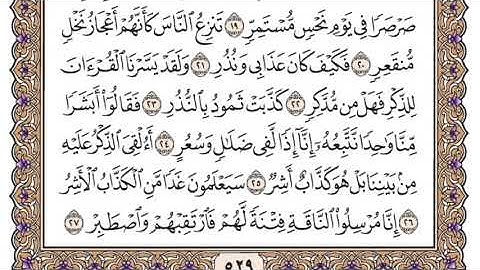 صَرْصَرًا فِى يَوْمِ نَحْسٍ مُّسْتَمِرٍّ ١٩ تَنزِعُ ٱلنَّاسَ كَأَنَّهُمْ أَعْجَازُ نَخْلٍ
مُّنقَعِرٍ ٢٠ فَكَيْفَ كَانَ عَذَابِى وَنُذُرِ ٢١ وَلَقَدْ يَسَّرْنَا ٱلْقُرْءَانَ
لِلذِّكْرِ فَهَلْ مِن مُّدَّكِرٍ ٢٢ كَذَّبَتْ ثَمُودُ بِٱلنُّذُرِ ٢٣ فَقَالُوٓا۟ أَبَشَرًا
مِّنَّا وَٰحِدًا نَّتَّبِعُهُۥٓ إِنَّآ إِذًا لَّفِى ضَلَٰلٍ وَسُعُرٍ ٢٤ أَءُلْقِىَ ٱلذِّكْرُ عَلَيْهِ
مِنۢ بَيْنِنَا بَلْ هُوَ كَذَّابٌ أَشِرٌ ٢٥ سَيَعْلَمُونَ غَدًا مَّنِ ٱلْكَذَّابُ ٱلْأَشِرُ
٢٦ إِنَّا مُرْسِلُوا۟ ٱلنَّاقَةِ فِتْنَةً لَّهُمْ فَٱرْتَقِبْهُمْ وَٱصْطَبِرْ ٢٧
٥٢٩